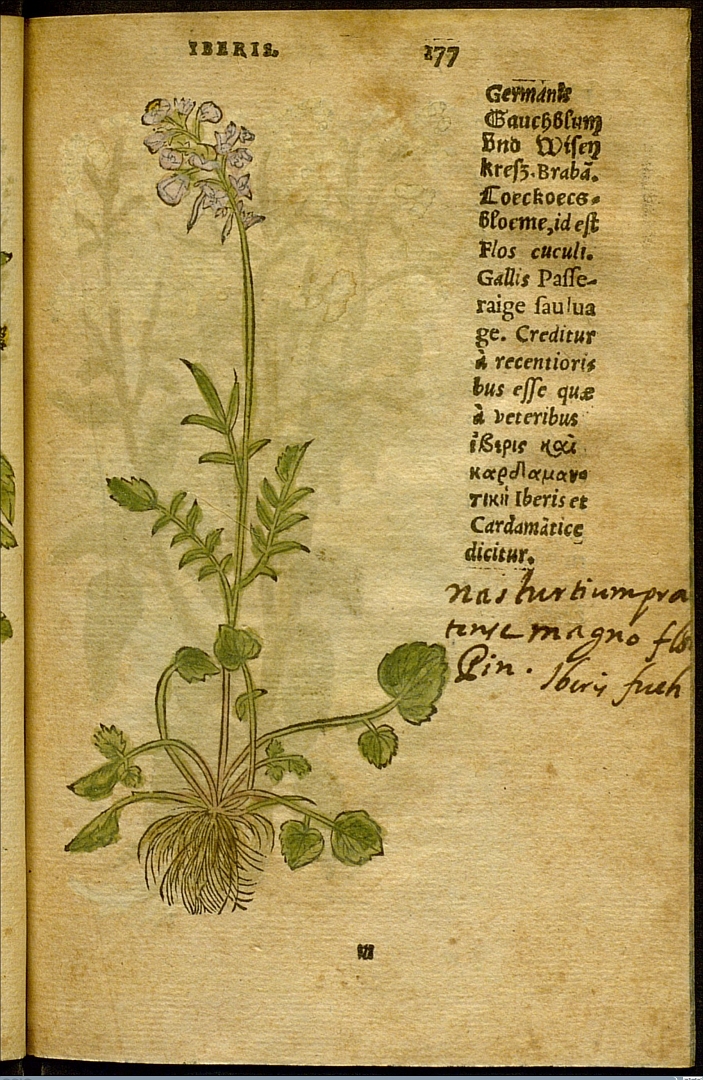 IBERIS. 177
Germanis
Gauchblum
vnd Wisen
kreſz. Brabā.
Coeckoecs-
bloeme, id eſt
Flos cuculi.
Gallis Paſſe-
raige ſaulua
ge. Creditur
à recentiori
bus eſſe quæ
à veteribus
ἰβερις καὶ
καρδαμαν
τικὴ Iberis et
Cardamàtice
dicitur.
nasturtium pra
tense magno flo
Pin. Iberis fuch